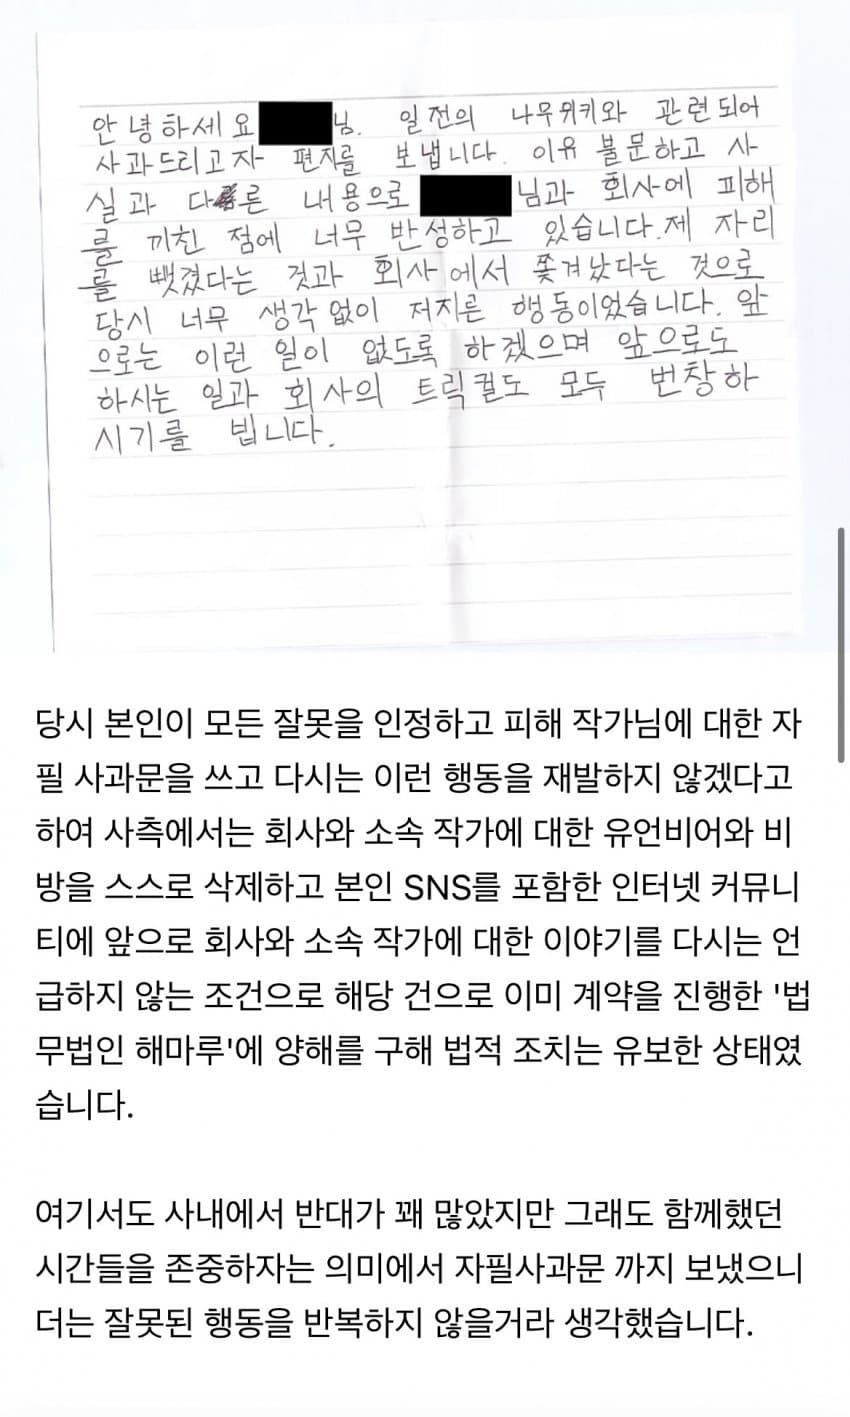 안녕하세요 님. 일전의 나무위키와 관련되어
사과드리고자 편지를 보냅니다. 이유 불문하고 사
실과 다른 내용으로 님과 회사에 피해
를 끼친 점에 너무 반성하고 있습니다. 제 자리
를 뺏겼다는 것과 회사에서 쫓겨났다는 것으로
당시 너무 생각없이 저지른 행동이었습니다. 앞
으로는 이런 일이 없도록 하겠으며 앞으로도
하시는 일과 회사의 트릭컬도 모두 번창하
시기를 빕니다.
당시 본인이 모든 잘못을 인정하고 피해 작가님에 대한 자
필 사과문을 쓰고 다시는 이런 행동을 재발하지 않겠다고
하여 사측에서는 회사와 소속 작가에 대한 유언비어와 비
방을 스스로 삭제하고 본인 SNS를 포함한 인터넷 커뮤니
티에 앞으로 회사와 소속 작가에 대한 이야기를 다시는 언
급하지 않는 조건으로 해당 건으로 이미 계약을 진행한 '법
무법인 해마루'에 양해를 구해 법적 조치는 유보한 상태였
습니다.
여기서도 사내에서 반대가 꽤 많았지만 그래도 함께했던
시간들을 존중하자는 의미에서 자필사과문 까지 보냈으니
더는 잘못된 행동을 반복하지 않을거라 생각했습니다.